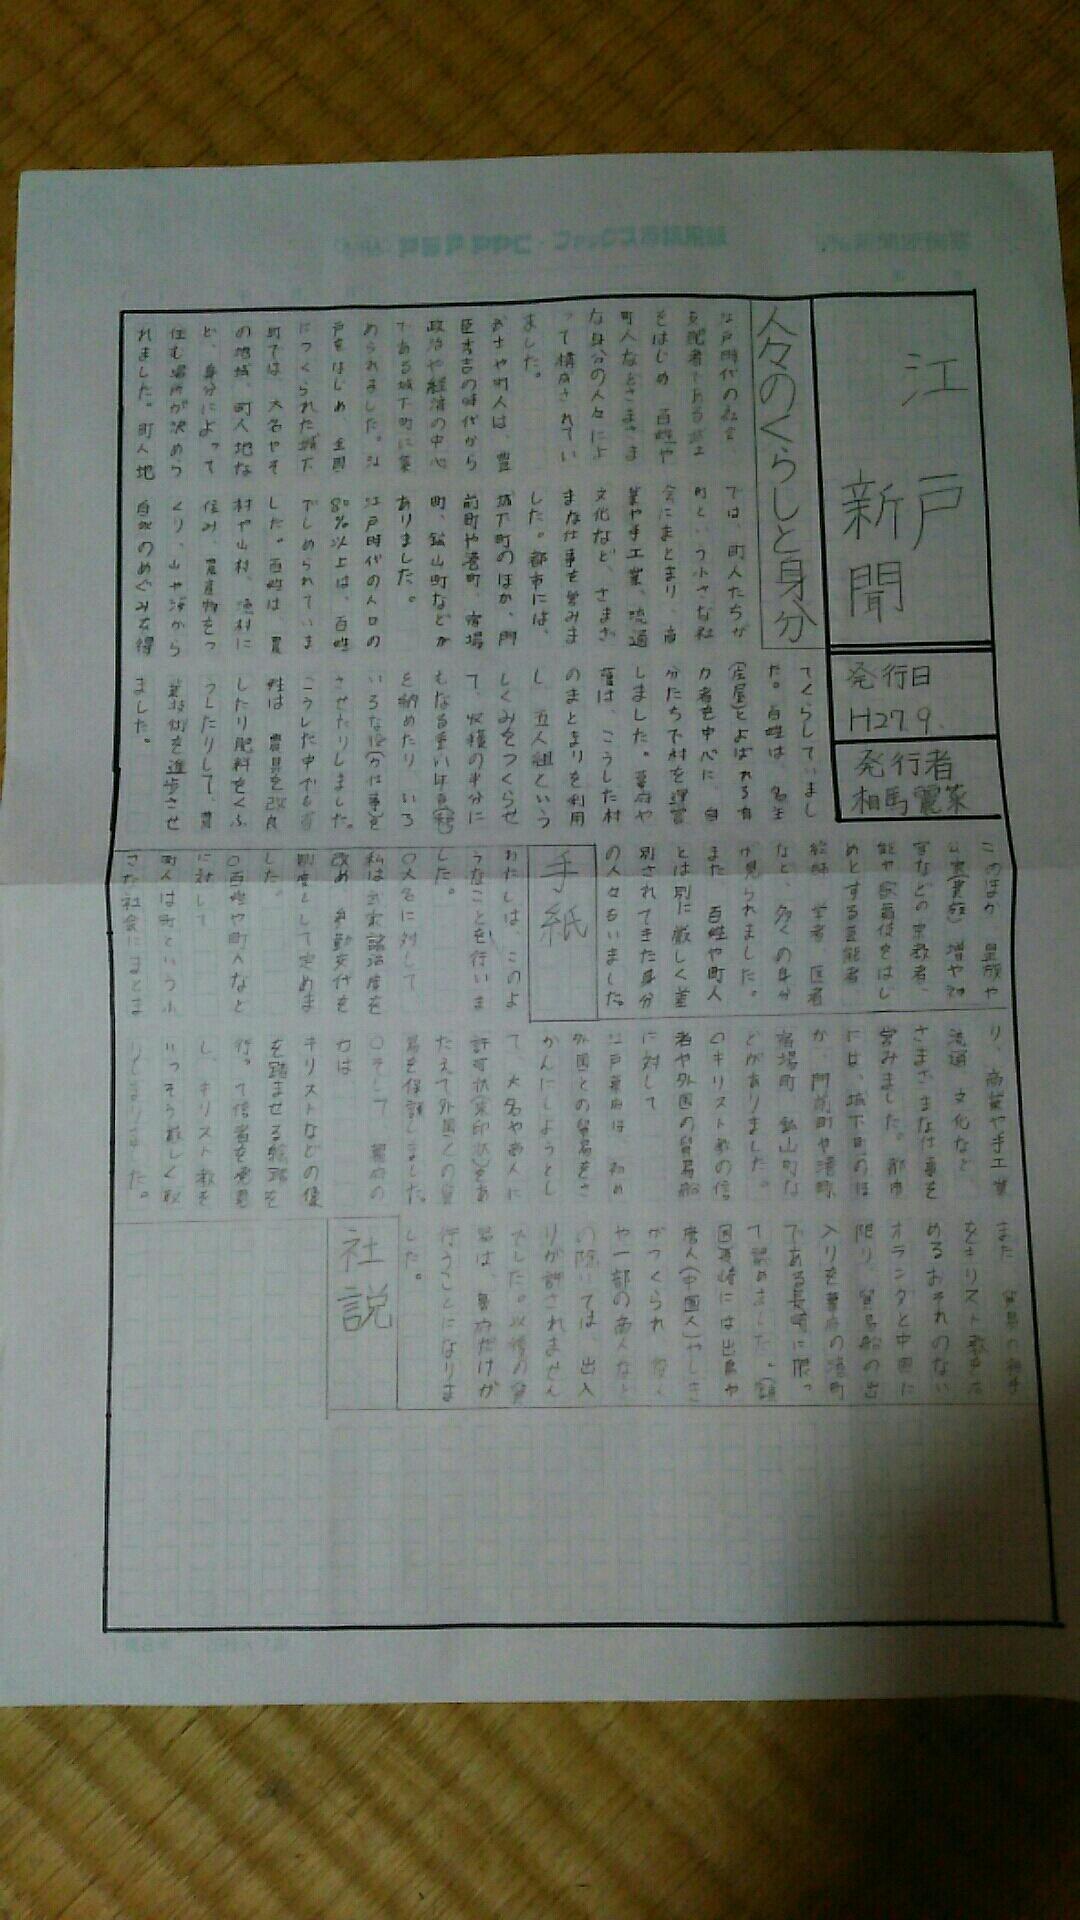 江戸
新聞
発行日
H27.9.
発行者
相馬
人々のくらしと身分
江戸時代の社会
支配者である武士
をはじめ 百姓や
町人などさまざま
な身分の人々によ
って構成されてい
ました。
武士や町人は、豊
臣秀吉の時代から
政治や経済の中心
である城下町に集
められました。江
戸をはじめ、全国
につくられた城下
町では、大名やそ
の地域、町人地な
ど、身分によって
住む場所が決めら
れました。町人地
では、町人たちが
町という小さな社
会にまとまり、商
業や手工業、流通
文化など、さまざ
まな仕事を営みま
した。都市には、
城下町のほか、門
前町や港町、宿場
町、鉱山町などが
ありました。
江戸時代の人口の
80%以上は、百姓
でしめられていま
した。百姓は、農
村や山村、漁村に
住み、農産物をつ
くり、山や海から
自然のめぐみを得
てくらしていまし
た。百姓は、名主
(庄屋)とよばれる有
力者を中心に、自
分たちで村を運営
しました。幕府や
藩は、こうした村
のまとまりを利用
し、五人組という
しくみをつくらせ
て、収穫の半分に
もなる重い年貢(税)
を納めたり、いろ
いろな役(力仕事)を
させたりしました。
こうした中でも百
姓は 農具を改良
したり肥料をくふ
うしたりして、農
業技術を進歩させ
ました。
このほか 皇族や
公家(貴族) 僧や神
官などの宗教者、
能や歌舞伎をはじ
めとする芸能者、
絵師 学者 医者
など、多くの身分
が見られました。
また 百姓や町人
とは別に厳しく差
別されてきた身分
の人々もいました。
手紙
わたしは、このよ
うなことを行いま
した。
○大名に対して
私は武家諸法度を
改め 参勤交代を
制度として定めま
した。
○百姓や町人など
に対して
町人は町という小
さな社会にまとま
り、商業や手工業
流通 文化など、
さまざまな仕事を
営みました。都市
には、城下町のほ
か、門前町や港町
宿場町 鉱山町な
どがありました。
○キリスト教の信
者や外国の貿易船
に対して
江戸幕府は 初め
外国との貿易をさ
かんにしようとし
て、大名や商人に
許可状(朱印状)をあ
たえて外国との貿
易を保護しました。
○そして 幕府の
力は
キリストなどの像
を踏ませる絵踏を
行って信者を発見
し、キリスト教を
いっそう厳しく取
りしまりました。
また 貿易の相手
をキリスト教を広
めるおそれのない
オランダと中国に
限り、貿易船の出
入りを幕府の港町
である長崎に限っ
て認めました。(鎖
国)長崎には出島や
唐人(中国人)やしき
がつくられ 役人
や一部の商人など
の除いては 出入
りが許されません
でした。以後の貿
易は、幕府だけが
行うことになりま
した。
社説